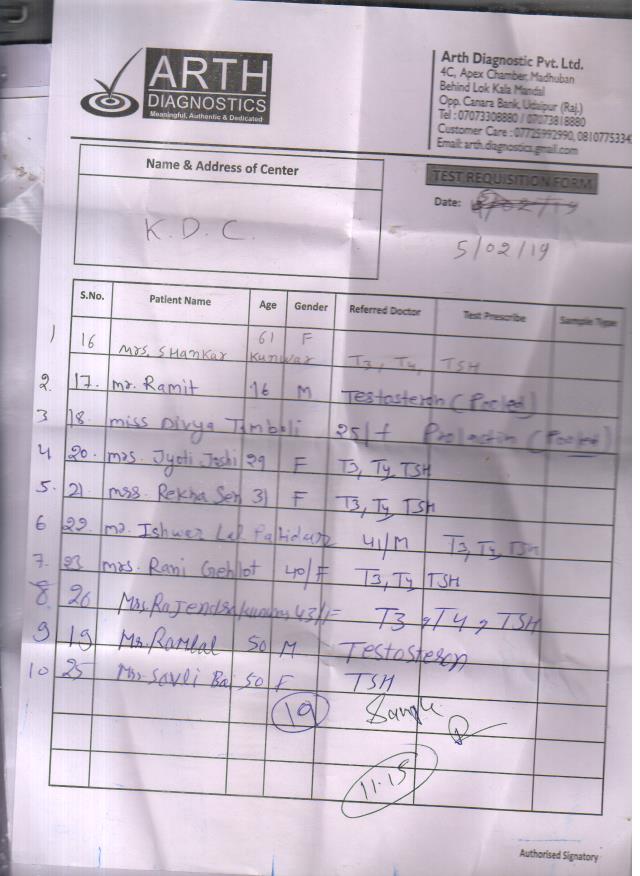 ARTH
DIAGNOSTICS
Meaningful, Authentic & Dedicated
Arth Diagnostic Pvt. Ltd.
4C, Apex Chamber, Madhuban
Behind Lok Kala Mandal
Opp. Canara Bank, Udaipur (Raj.)
Tel : 07073308880 / 07073818880
Customer Care : 07725992990, 0810775334
Email: arth.diagnostics@gmail.com
Name & Address of Center
K.D.C.
TEST REQUISITION FORM
Date:
5/02/19
S.No. Patient Name Age Gender Referred Doctor Test Prescribe Sample Type
1 16 Mrs. Shankar Kunwar 61 F T3, T4, TSH
2. 17. Mr. Ramit 16 M Testosteron (Pooled)
3 18. miss Divya Tamboli 25/f Prolactin (Pooled)
4 20. mrs. Jyoti Joshi 29 F T3, T4, TSH
5. 21. mrs. Rekha Sen 31 F T3, T4, TSH
6 22 mr. Ishwar Lal Patidar 41/M T3, T4, TSH
7. 23 mrs. Rani Gehlot 40/F T3, T4, TSH
8 26 Mrs. Rajendra kunwar 43/F T3, T4, TSH
9 19 Mr. Ramlal 50 M Testosteron
10 25 Savli Bai 50 F TSH
10 Sample
11.15
Authorised Signatory